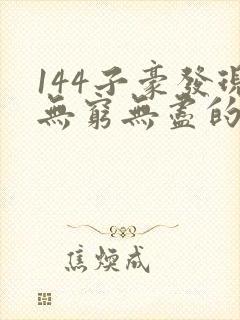 144子豪發現
無窮無盡的
焦煥成